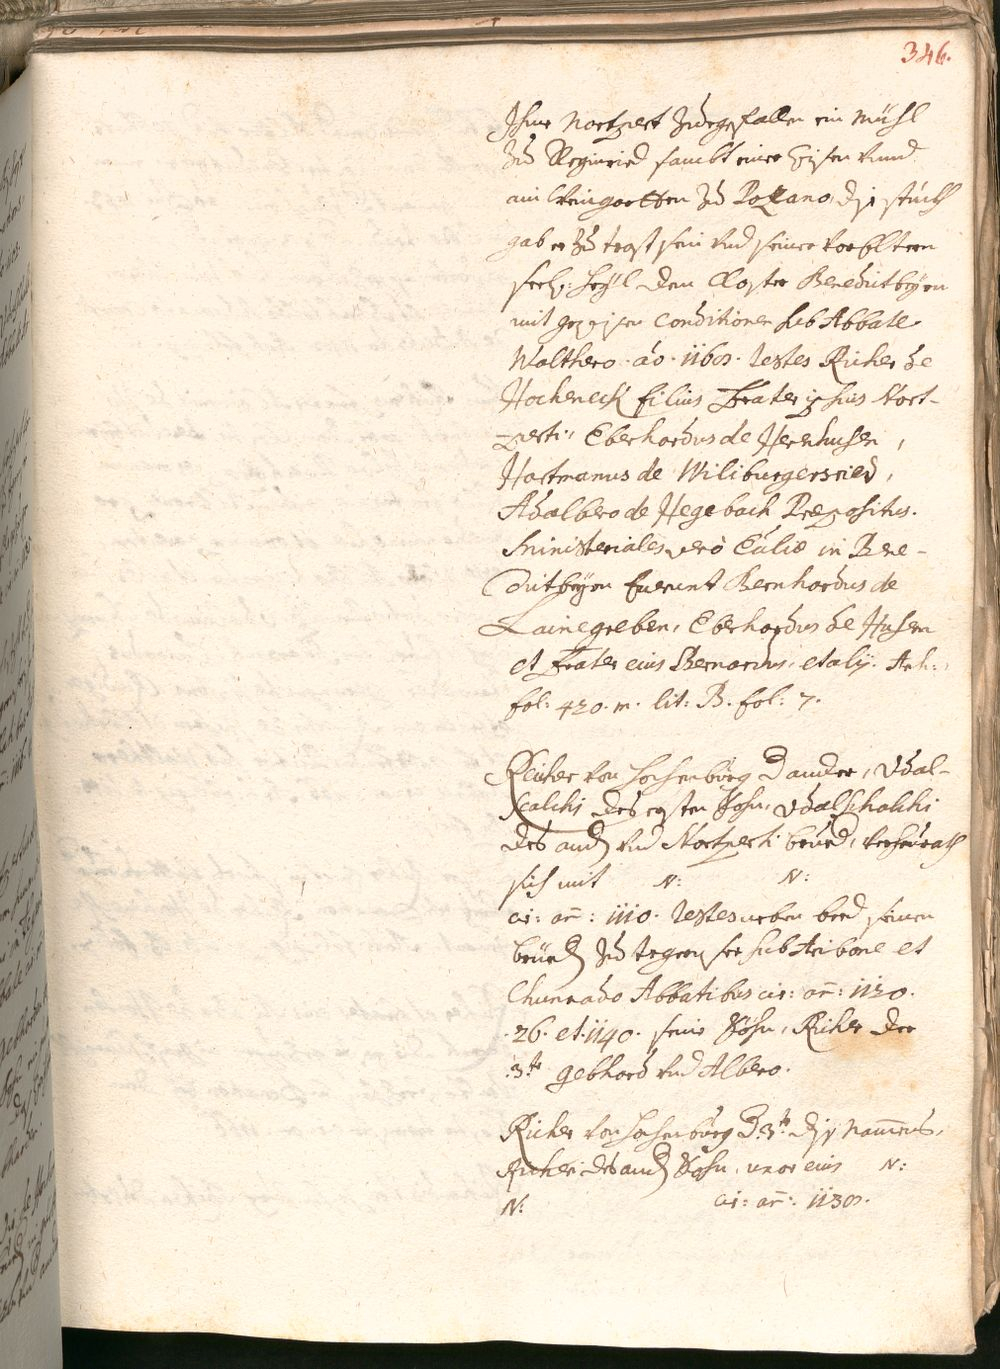 346.
Ihme Nortpert Zuegefallen ein Mühl
Zu Reginried sambt einer Hisen Vnnd
ain Weingartten Zu Pozano, dise stückh
gab er Zu trost sein Vnd seiner Voreltern
seel: heÿl dem Closter Benedictbeÿrn
mit gewisen Conditionen sub Abbate
Walthero. aõ. 1160. Testes Richer de
Hocheneck filius Frater ipsius Nort-
perti, Eberhardus de Hernhusen,
Hartmanus de Wiliburgersried,
Adalbero de Hegebach Præpositus.
Ministeriales verò Ecclíæ in Bene-
dictbeÿrn fuerunt Bernhardus de
Lainegreben, Eberhardus de Husen
et Frater eius Bernardus, et alÿ.
fol: 420. m. lit: B. fol: 7.
Richer Von Hochenburg D ander, Vdal-
scalchi des ersten Sohn, Vdalschalchi
des and Vnd Nortperti brued, Verheürath
sich mit N: N:
cir: añ: 1110. Testes neben beed seinen
brüed Zu tegernsee sub Aribone et
Chunrado Abbatibus cir: añ: 1120.
26. et 1140. seine Söhn, Richer der
3te gebhard Vnd Albero.
Richer Von Hochenburg D. 3te diß Nam̃ens,
Richeri des and Sohn, uxor eius N:
N: cir: añ: 1130.